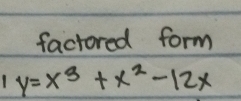 factored form
1 y = x³ + x² - 12x